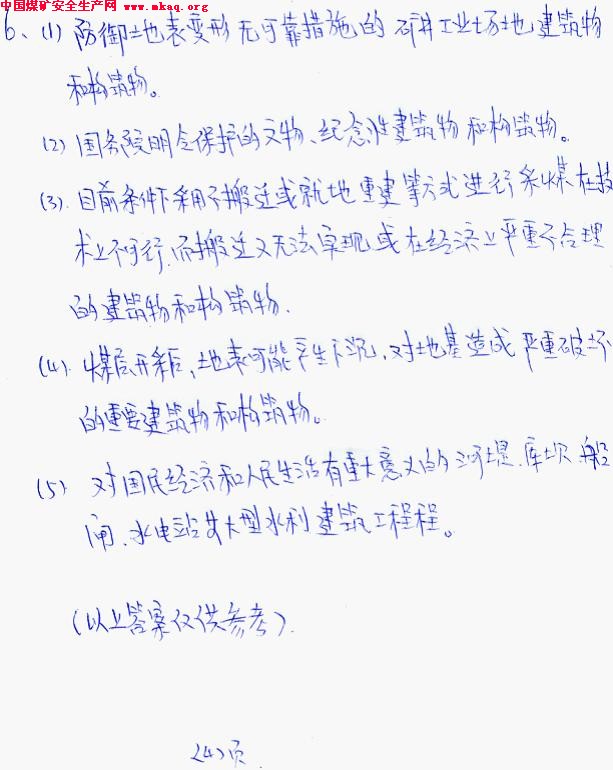 中国煤矿安全生产网 www.mkaq.org
6、(1) 防御土地表变形无可靠措施的矿井工业场地建筑物
和构筑物。
(2) 国务院明令保护的文物、纪念性建筑物和构筑物。
(3). 目前条件下采用不搬迁或就地重建等方式进行采煤在技
术上不可行,而搬迁又无法实现,或在经济上严重不合理
的建筑物和构筑物.
(4). 煤层开采后,地表可能产生下沉,对地基造成严重破坏
的重要建筑物和构筑物。
(5) 对国民经济和人民生活有重大意义的河堤.库坝.船
闸.水电站 大型水利建筑工程程。
(以上答案仅供参考).
(4)页